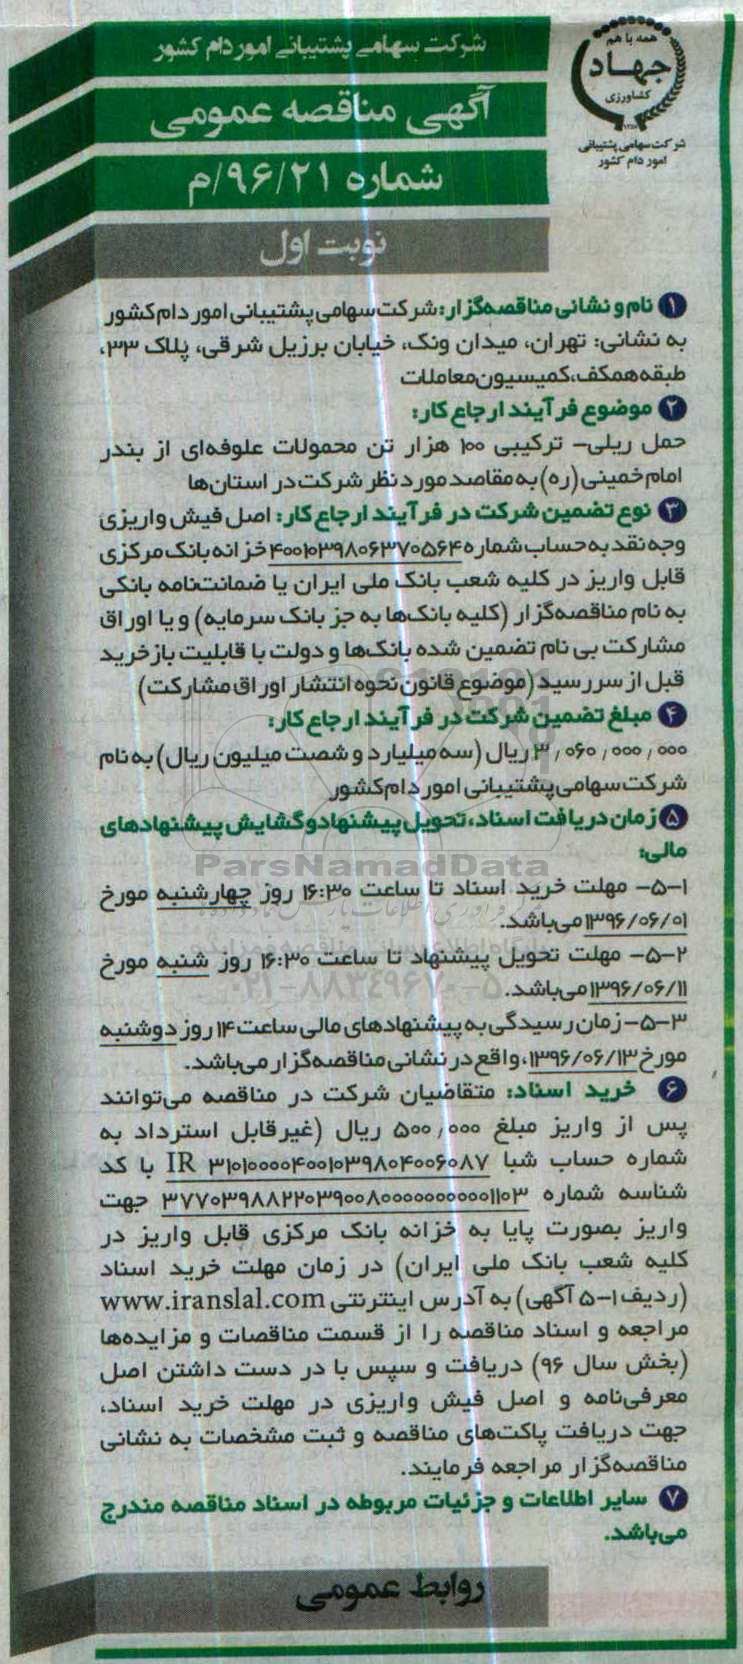 همه با هم
جهاد
کشاورزی
شرکت سهامی پشتیبانی
امور دام کشور
شرکت سهامی پشتیبانی امور دام کشور
آگهی مناقصه عمومی
شماره ۹۶/۲۱/م
نوبت اول
۱ نام و نشانی مناقصه‌گزار: شرکت سهامی پشتیبانی امور دام کشور
به نشانی: تهران، میدان ونک، خیابان برزیل شرقی، پلاک ۳۳،
طبقه همکف، کمیسیون معاملات
۲ موضوع فرآیند ارجاع کار:
حمل ریلی- ترکیبی ۱۰۰ هزار تن محمولات علوفه‌ای از بندر
امام خمینی (ره) به مقاصد مورد نظر شرکت در استان‌ها
۳ نوع تضمین شرکت در فرآیند ارجاع کار: اصل فیش واریزی
وجه نقد به حساب شماره ۴۰۰۱۰۳۹۸۰۶۳۷۰۵۶۴ خزانه بانک مرکزی
قابل واریز در کلیه شعب بانک ملی ایران یا ضمانت‌نامه بانکی
به نام مناقصه‌گزار (کلیه بانک‌ها به جز بانک سرمایه) و یا اوراق
مشارکت بی نام تضمین شده بانک‌ها و دولت با قابلیت بازخرید
قبل از سررسید (موضوع قانون نحوه انتشار اوراق مشارکت)
۴ مبلغ تضمین شرکت در فرآیند ارجاع کار:
۳٫۰۶۰٫۰۰۰٫۰۰۰ ریال (سه میلیارد و شصت میلیون ریال) به نام
شرکت سهامی پشتیبانی امور دام کشور
۵ زمان دریافت اسناد، تحویل پیشنهاد و گشایش پیشنهادهای
مالی:
ParsNamadData
۵-۱- مهلت خرید اسناد تا ساعت ۱۶:۳۰ روز چهارشنبه مورخ
۱۳۹۶/۰۶/۰۱ می‌باشد.
۵-۲- مهلت تحویل پیشنهاد تا ساعت ۱۶:۳۰ روز شنبه مورخ
۱۳۹۶/۰۶/۱۱ می‌باشد.
۰۲۱-۸۸۳۴۹۶۷۰-۵
۵-۳- زمان رسیدگی به پیشنهادهای مالی ساعت ۱۴ روز دوشنبه
مورخ ۱۳۹۶/۰۶/۱۳، واقع در نشانی مناقصه‌گزار می‌باشد.
۶ خرید اسناد: متقاضیان شرکت در مناقصه می‌توانند
پس از واریز مبلغ ۵۰۰٫۰۰۰ ریال (غیرقابل استرداد به
شماره حساب شبا IR ۳۱۰۱۰۰۰۰۴۰۰۱۰۳۹۸۰۴۰۰۶۰۸۷ با کد
شناسه شماره ۳۷۷۰۳۹۸۸۲۲۰۳۹۰۰۸۰۰۰۰۰۰۰۰۰۰۱۱۰۳ جهت
واریز بصورت پایا به خزانه بانک مرکزی قابل واریز در
کلیه شعب بانک ملی ایران) در زمان مهلت خرید اسناد
(ردیف ۱-۵ آگهی) به آدرس اینترنتی www.iranslal.com
مراجعه و اسناد مناقصه را از قسمت مناقصات و مزایده‌ها
(بخش سال ۹۶) دریافت و سپس با در دست داشتن اصل
معرفی‌نامه و اصل فیش واریزی در مهلت خرید اسناد،
جهت دریافت پاکت‌های مناقصه و ثبت مشخصات به نشانی
مناقصه‌گزار مراجعه فرمایند.
۷ سایر اطلاعات و جزئیات مربوطه در اسناد مناقصه مندرج
می‌باشد.
روابط عمومی